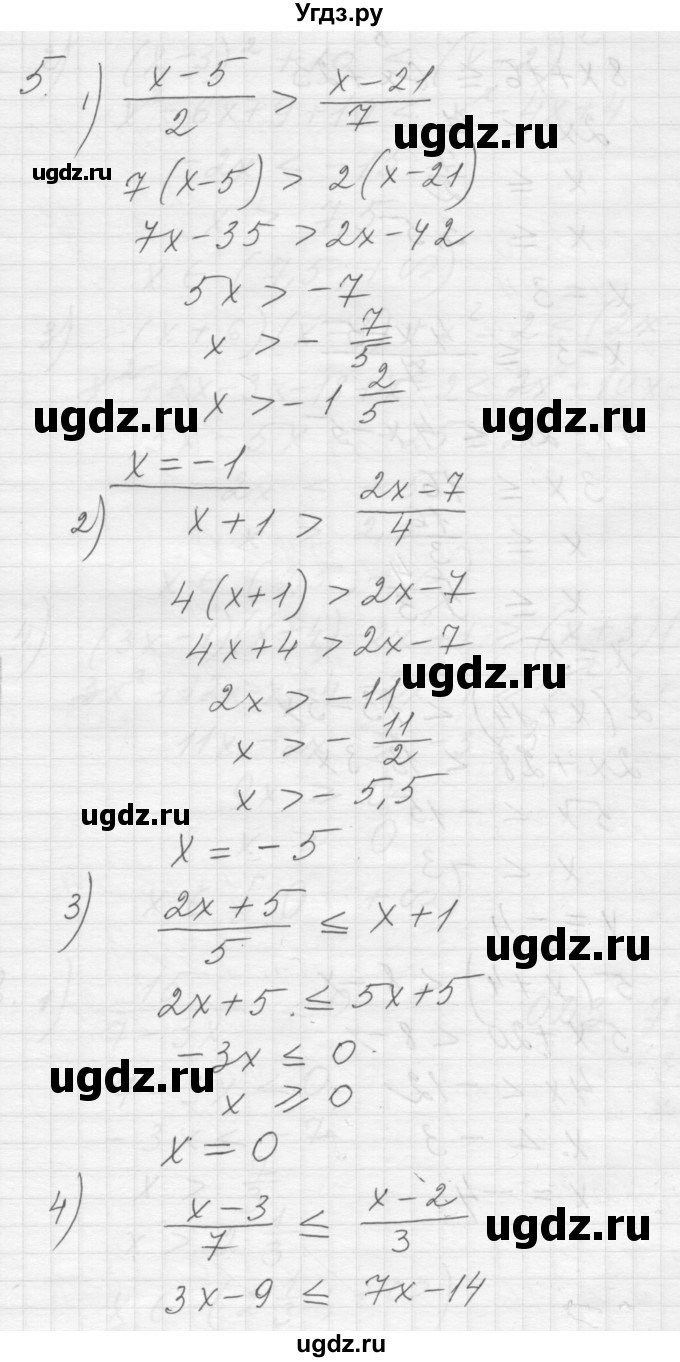 Угдз.ру
5.
1) (x-5)/2 > (x-21)/7
ugdz.ru
ugdz.ru
7(x-5) > 2(x-21)
7x-35 > 2x-42
5x > -7
x > - 7/5
x > -1 2/5
ugdz.ru
ugdz.ru
x = -1
2) x+1 > (2x-7)/4
4(x+1) > 2x-7
4x+4 > 2x-7
ugdz.ru
2x > -11
x > - 11/2
x > -5,5
ugdz.ru
x = -5
3) (2x+5)/5 ≤ x+1
ugdz.ru
2x+5 ≤ 5x+5
-3x ≤ 0
ugdz.ru
x ≥ 0
x = 0
4) (x-3)/7 ≤ (x-2)/3
ugdz.ru
3x-9 ≤ 7x-14
ugdz.ru